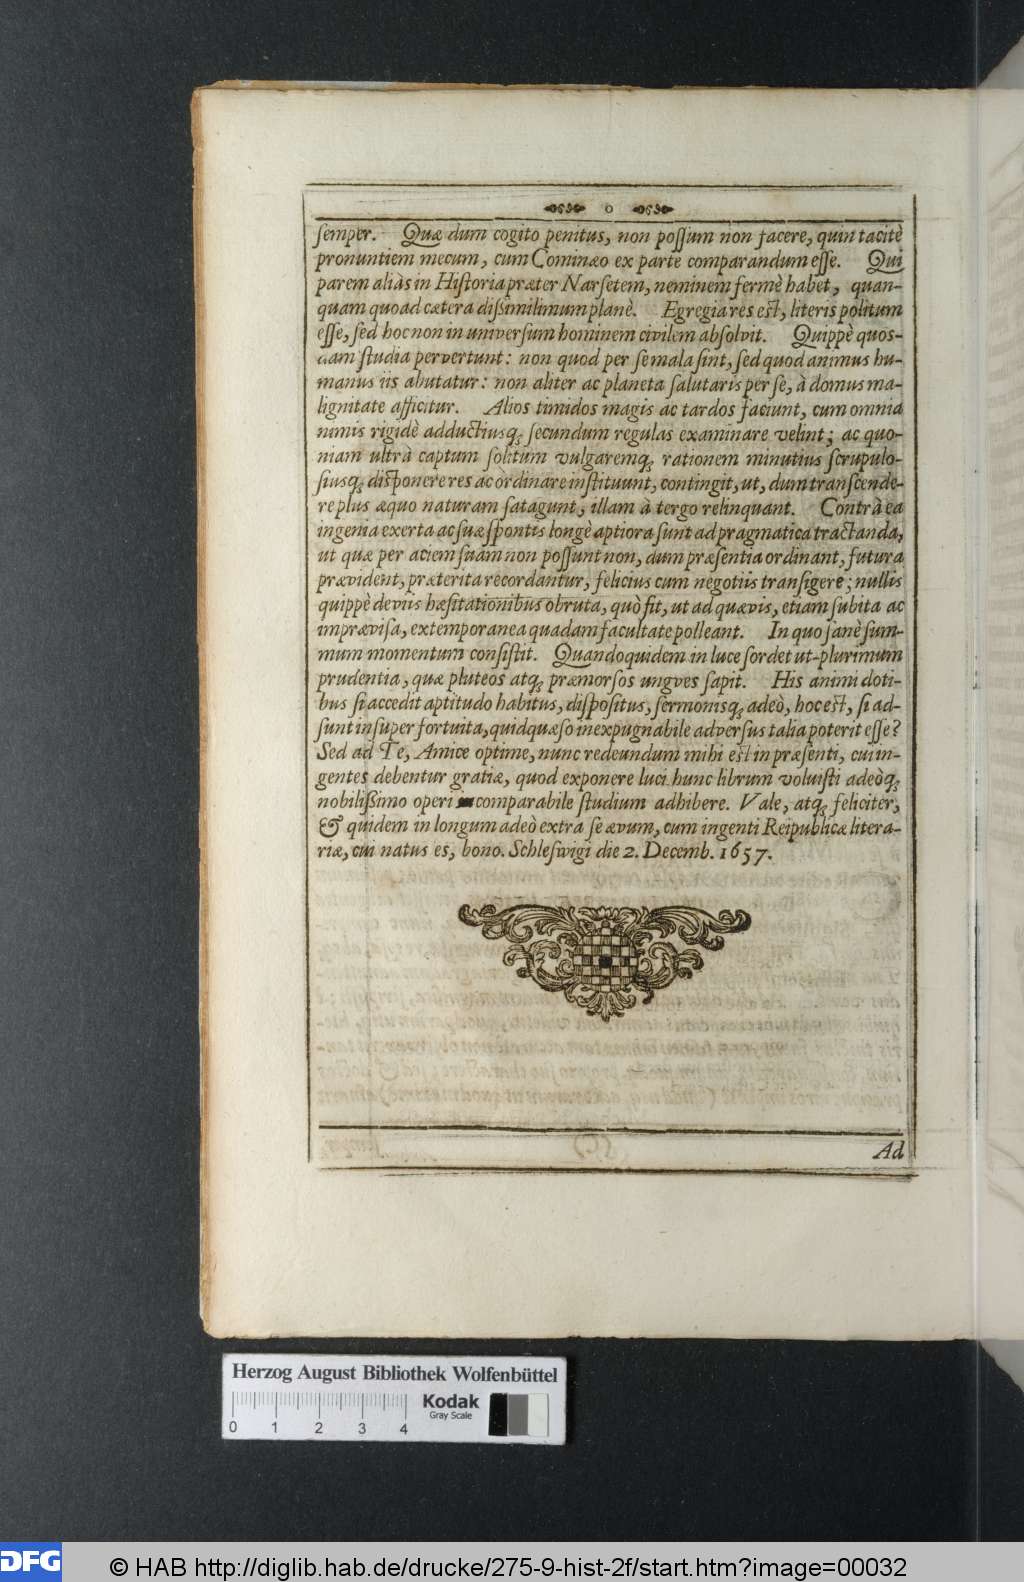 0
semper. Quæ dum cogito penitus, non possum non facere, quin tacitè
pronuntiem mecum, cum Cominæo ex parte comparandum esse. Qui
parem aliàs in Historia præter Narsetem, neminem fermè habet, quan-
quam quoad cætera dißimilimum planè. Egregia res est, literis politum
esse, sed hoc non in universum hominem civilem absolvit. Quippè quos-
dam studia pervertunt: non quod per se mala sint, sed quod animus hu-
manus iis abutatur: non aliter ac planeta salutaris per se, à domus ma-
lignitate afficitur. Alios timidos magis ac tardos faciunt, cum omnia
nimis rigidè adductiusq; secundum regulas examinare velint; ac quo-
niam ultrà captum solitum vulgaremq; rationem minutius scrupulo-
siusq; disponere res ac òrdinare instituunt, contingit, ut, dum transcende-
re plus æquo naturam satagunt, illam à tergo relinquant. Contrà ea
ingenia exerta ac suæ spontis longè aptiora sunt ad pragmatica tractanda,
ut quæ per aciem suam non possunt non, dum præsentia ordinant, futura
prævident, præterita recordantur, felicius cum negotiis transigere; nullis
quippè deviis hæsitationibus obruta, quò fit, ut ad quævis, etiam subita ac
imprævisa, extemporanea quadam facultate polleant. In quo sanè sum-
mum momentum consistit. Quandoquidem in luce sordet ut-plurimum
prudentia, quæ pluteos atq; præmorsos ungves sapit. His animi doti-
bus si accedit aptitudo habitus, dispositus, sermonisq; adeò, hoc est, si ad-
sunt insuper fortuita, quid quæso inexpugnabile adversus talia poterit esse?
Sed ad Te, Amice optime, nunc redeundum mihi est in præsenti, cui in-
gentes debentur gratiæ, quod exponere luci hunc librum voluisti adeòq;
nobilißimo operi incomparabile studium adhibere. Vale, atq; feliciter,
& quidem in longum adeò extra se ævum, cum ingenti Reipublicæ litera-
riæ, cui natus es, bono. Schleswigi die 2. Decemb. 1657.
Ad
Herzog August Bibliothek Wolfenbüttel
0 1 2 3 4
Kodak
Gray Scale
DFG
© HAB http://diglib.hab.de/drucke/275-9-hist-2f/start.htm?image=00032